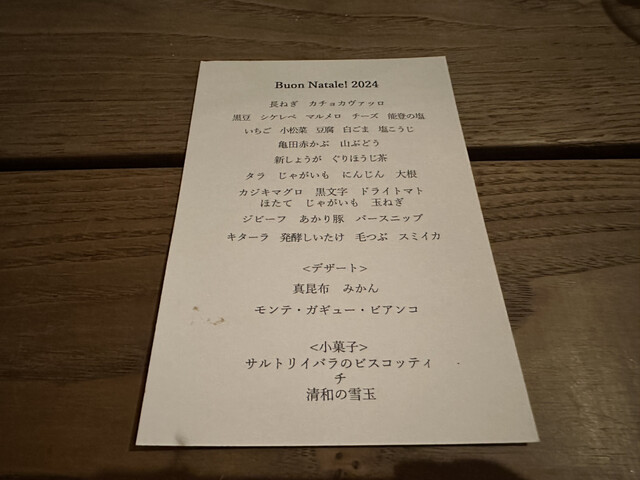 Buon Natale! 2024
長ねぎ カチョカヴァッロ
黒豆 シケレペ マルメロ チーズ 能登の塩
いちご 小松菜 豆腐 白ごま 塩こうじ
亀田赤かぶ 山ぶどう
新しょうが ぐりほうじ茶
タラ じゃがいも にんじん 大根
カジキマグロ 黒文字 ドライトマト
ほたて じゃがいも 玉ねぎ
ジビーフ あかり豚 パースニップ
キターラ 発酵しいたけ 毛つぶ スミイカ
<デザート>
真昆布 みかん
モンテ・ガギュー・ビアンコ
<小菓子>
サルトリイバラのビスコッティ
チ
清和の雪玉